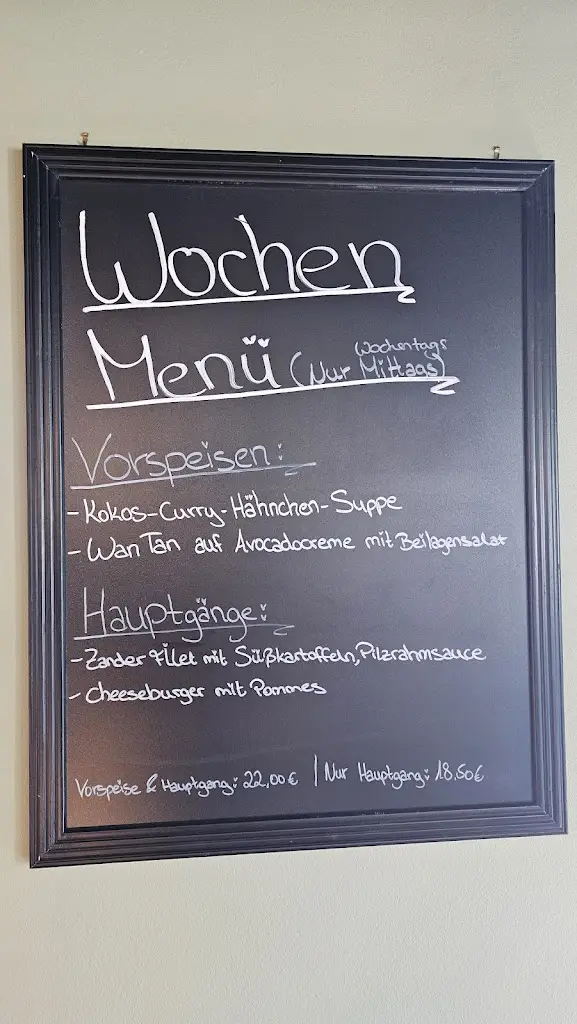 Wochen
Menü (Nur Wochentags Mittags)
Vorspeisen:
- Kokos-Curry-Hähnchen-Suppe
- Wan Tan auf Avocadocreme mit Beilagensalat
Hauptgänge:
- Zander Filet mit Süßkartoffeln, Pilzrahmsauce
- Cheeseburger mit Pommes
Vorspeise & Hauptgang: 22,00€ | Nur Hauptgang: 18,50€